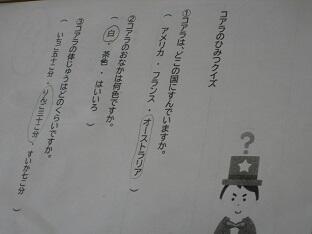 コアラのひみつクイズ
①コアラは、どこの国にすんでいますか。
( アメリカ ・ フランス ・ オーストラリア )
②コアラのおなかは何色ですか。
( 白 ・ 茶色 ・ はいいろ )
③コアラの体じゅうはどのくらいですか。
( いちご五十こ分 、 りんご三十こ分 、 すいか七こ分 )
?